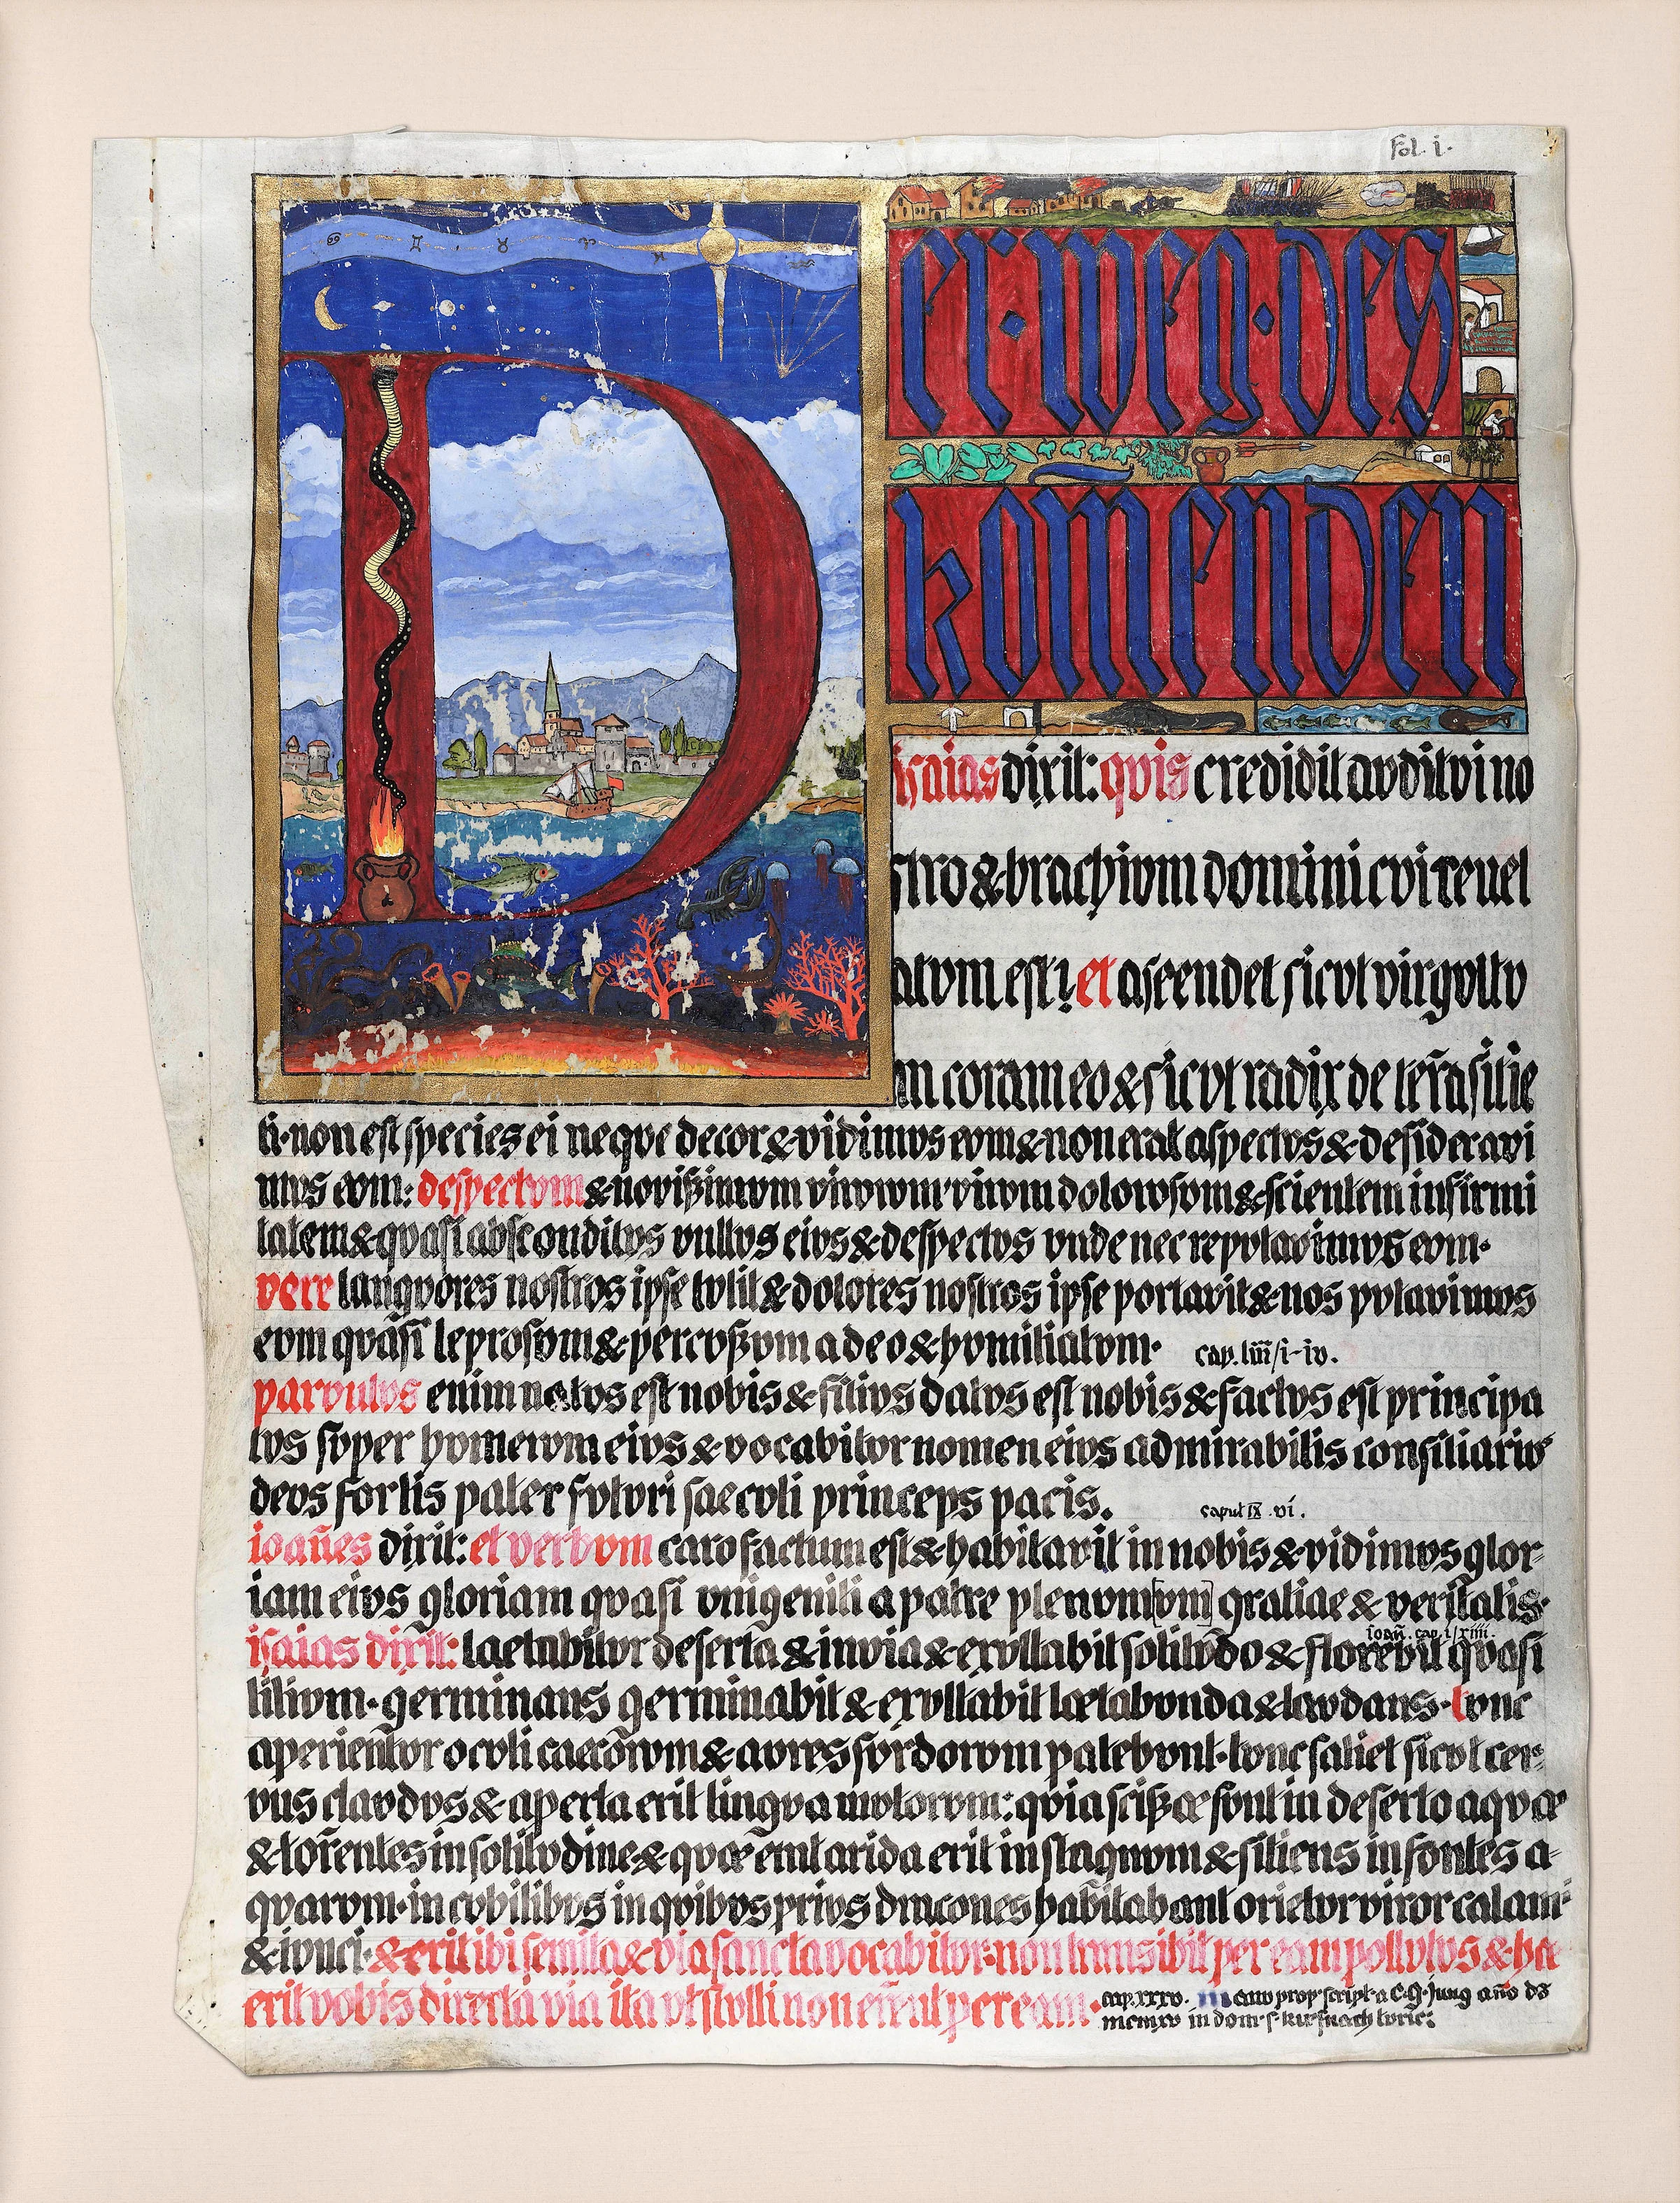 fol. i.
Der · weg · des
komenden
isaias dixit: quis credidit avditvi no
stro & brachivm domini cvi revel
atvm est? et ascendet sicvt virgvltv
m coram eo & sicvt radix de terra sitie
ti · non est species ei neqve decor & vidimvs evm & non erat aspectvs & desideravi
mvs evm: despectvm & novißimvm virorvm virvm dolorosvm & scientem infirmi
tatem & qvasi absconditvs vvltvs eivs & despectvs vnde nec repvtavimvs evm ·
vere langvores nostros ipse tvlit & dolores nostros ipse portavit & nos pvtavimvs
evm qvasi leprosvm & percvßvm a deo & hvmiliatvm · cap. liii/i-iv.
parvulus enim natvs est nobis & filivs datvs est nobis & factvs est principa
tvs svper hvmervm eivs & vocabitvr nomen eivs admirabilis consiliarivs
devs fortis pater fvtvri saecvli princeps pacis. caput IX .vi.
ioañes dixit: et verbvm caro factum est & habitavit in nobis & vidimvs glor-
iam eivs gloriam qvasi vnigeniti a patre plenvm[vm] gratiae & veritatis ·
ioañ. cap. i/xiiii.
isaias dixit: laetabitvr deserta & invia & exvltabit solitvdo & florebit qvasi
lilivm · germinans germinabit & exvltabit lætabvnda & lavdans · tvnc
aperientvr ocvli caecorvm & avres svrdorvm patebvnt · tvnc saliet sicvt cer-
vus clavdvs & aperta erit lingva mvtorvm: qvia scißæ svnt in deserto aqvæ
& torentes in solitvdine & qvæ erat arida erit in stagnvm & sitiens in fontes a-
qvarvm · in cvbilibvs in qvibvs privs dracones habitabant orietvr viror calami
& ivnci · & erit ibi semita & via sancta vocabitvr · non transibit per eam pollvtvs & hæc
erit vobis directa via ita vt stvlti non errent per eam · cap. xxxv.
manv prop script. a C.G. jung año ds
mcmxv in dom s kusnach turic: